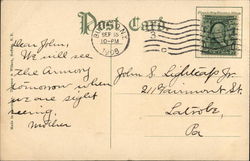 Post Card
SEP 15
10-PM
1908
Dear John,
We will see
the Armory
tomorrow when
we are sight
seeing.
Mother
John S. Lightcap Jr.
211 Fairmont St.
Latrobe,
Pa